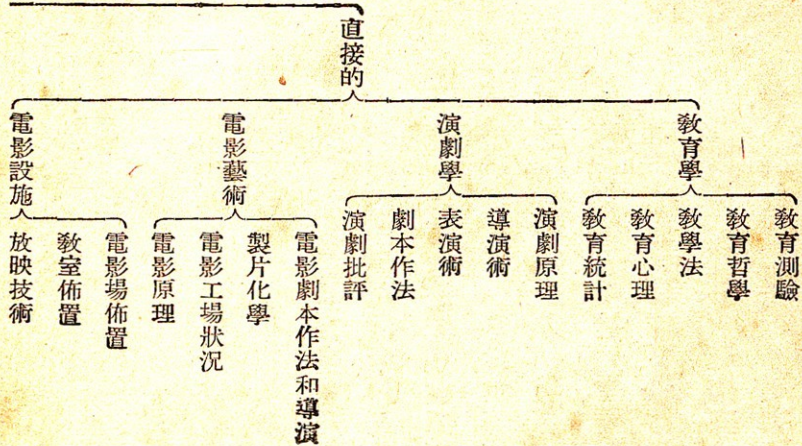 直接的
教育學
教育測驗
教育哲學
教學法
教育心理
教育統計
演劇學
演劇原理
導演術
表演術
劇本作法
演劇批評
電影藝術
電影劇本作法和導演
製片化學
電影工場狀況
電影原理
電影設施
電影場佈置
教室佈置
放映技術